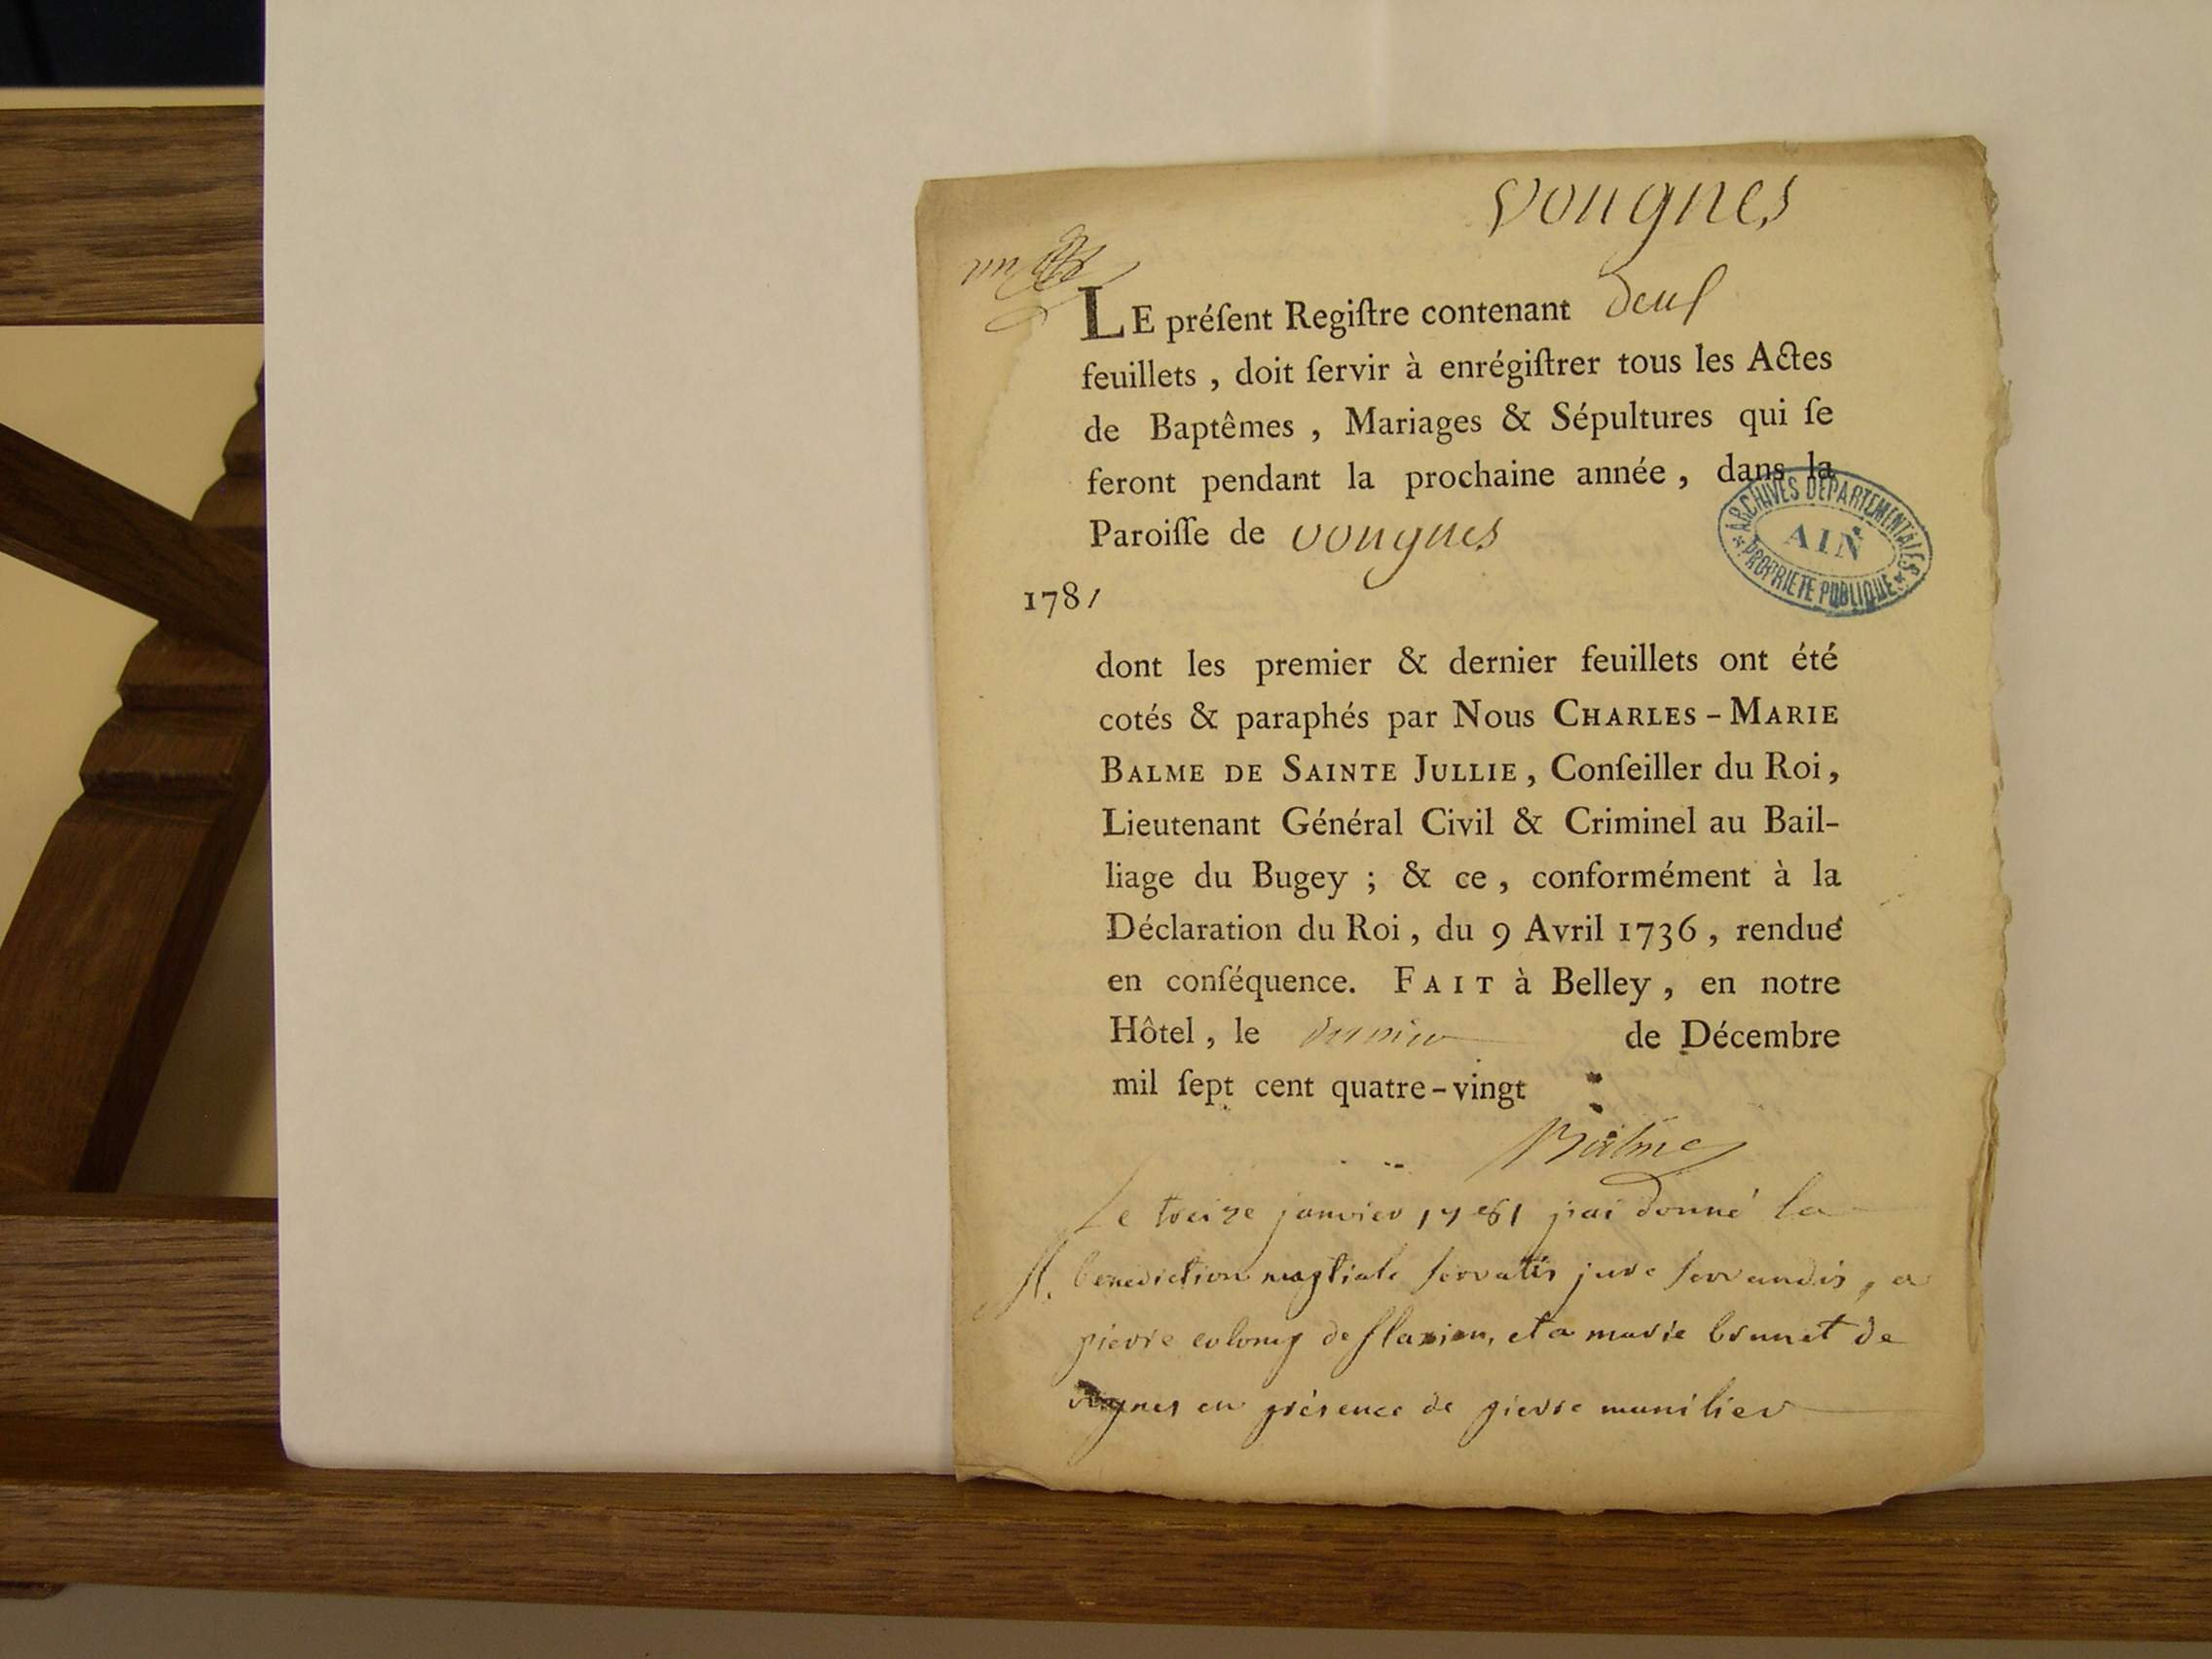 vongnes
un
LE préſent Regiſtre contenant deux
feuillets , doit ſervir à enrégiſtrer tous les Actes
de Baptêmes , Mariages & Sépultures qui ſe
feront pendant la prochaine année , dans la
Paroiſſe de vongnes
ARCHIVES DÉPARTEMENTALES
AIN
PROPRIETE PUBLIQUE
1781
dont les premier & dernier feuillets ont été
cotés & paraphés par Nous CHARLES-MARIE
BALME DE SAINTE JULLIE , Conſeiller du Roi ,
Lieutenant Général Civil & Criminel au Bail-
liage du Bugey ; & ce , conformément à la
Déclaration du Roi , du 9 Avril 1736 , rendue
en conſéquence. FAIT à Belley , en notre
Hôtel , le dernier de Décembre
mil ſept cent quatre-vingt
Balme
Le treize janvier 1781 jai donné la
M. benediction nuptiale servatis jure servandis , a
pierre colomp de flaxieu, et a marie brunet de
vognes en présence de pierre munilier